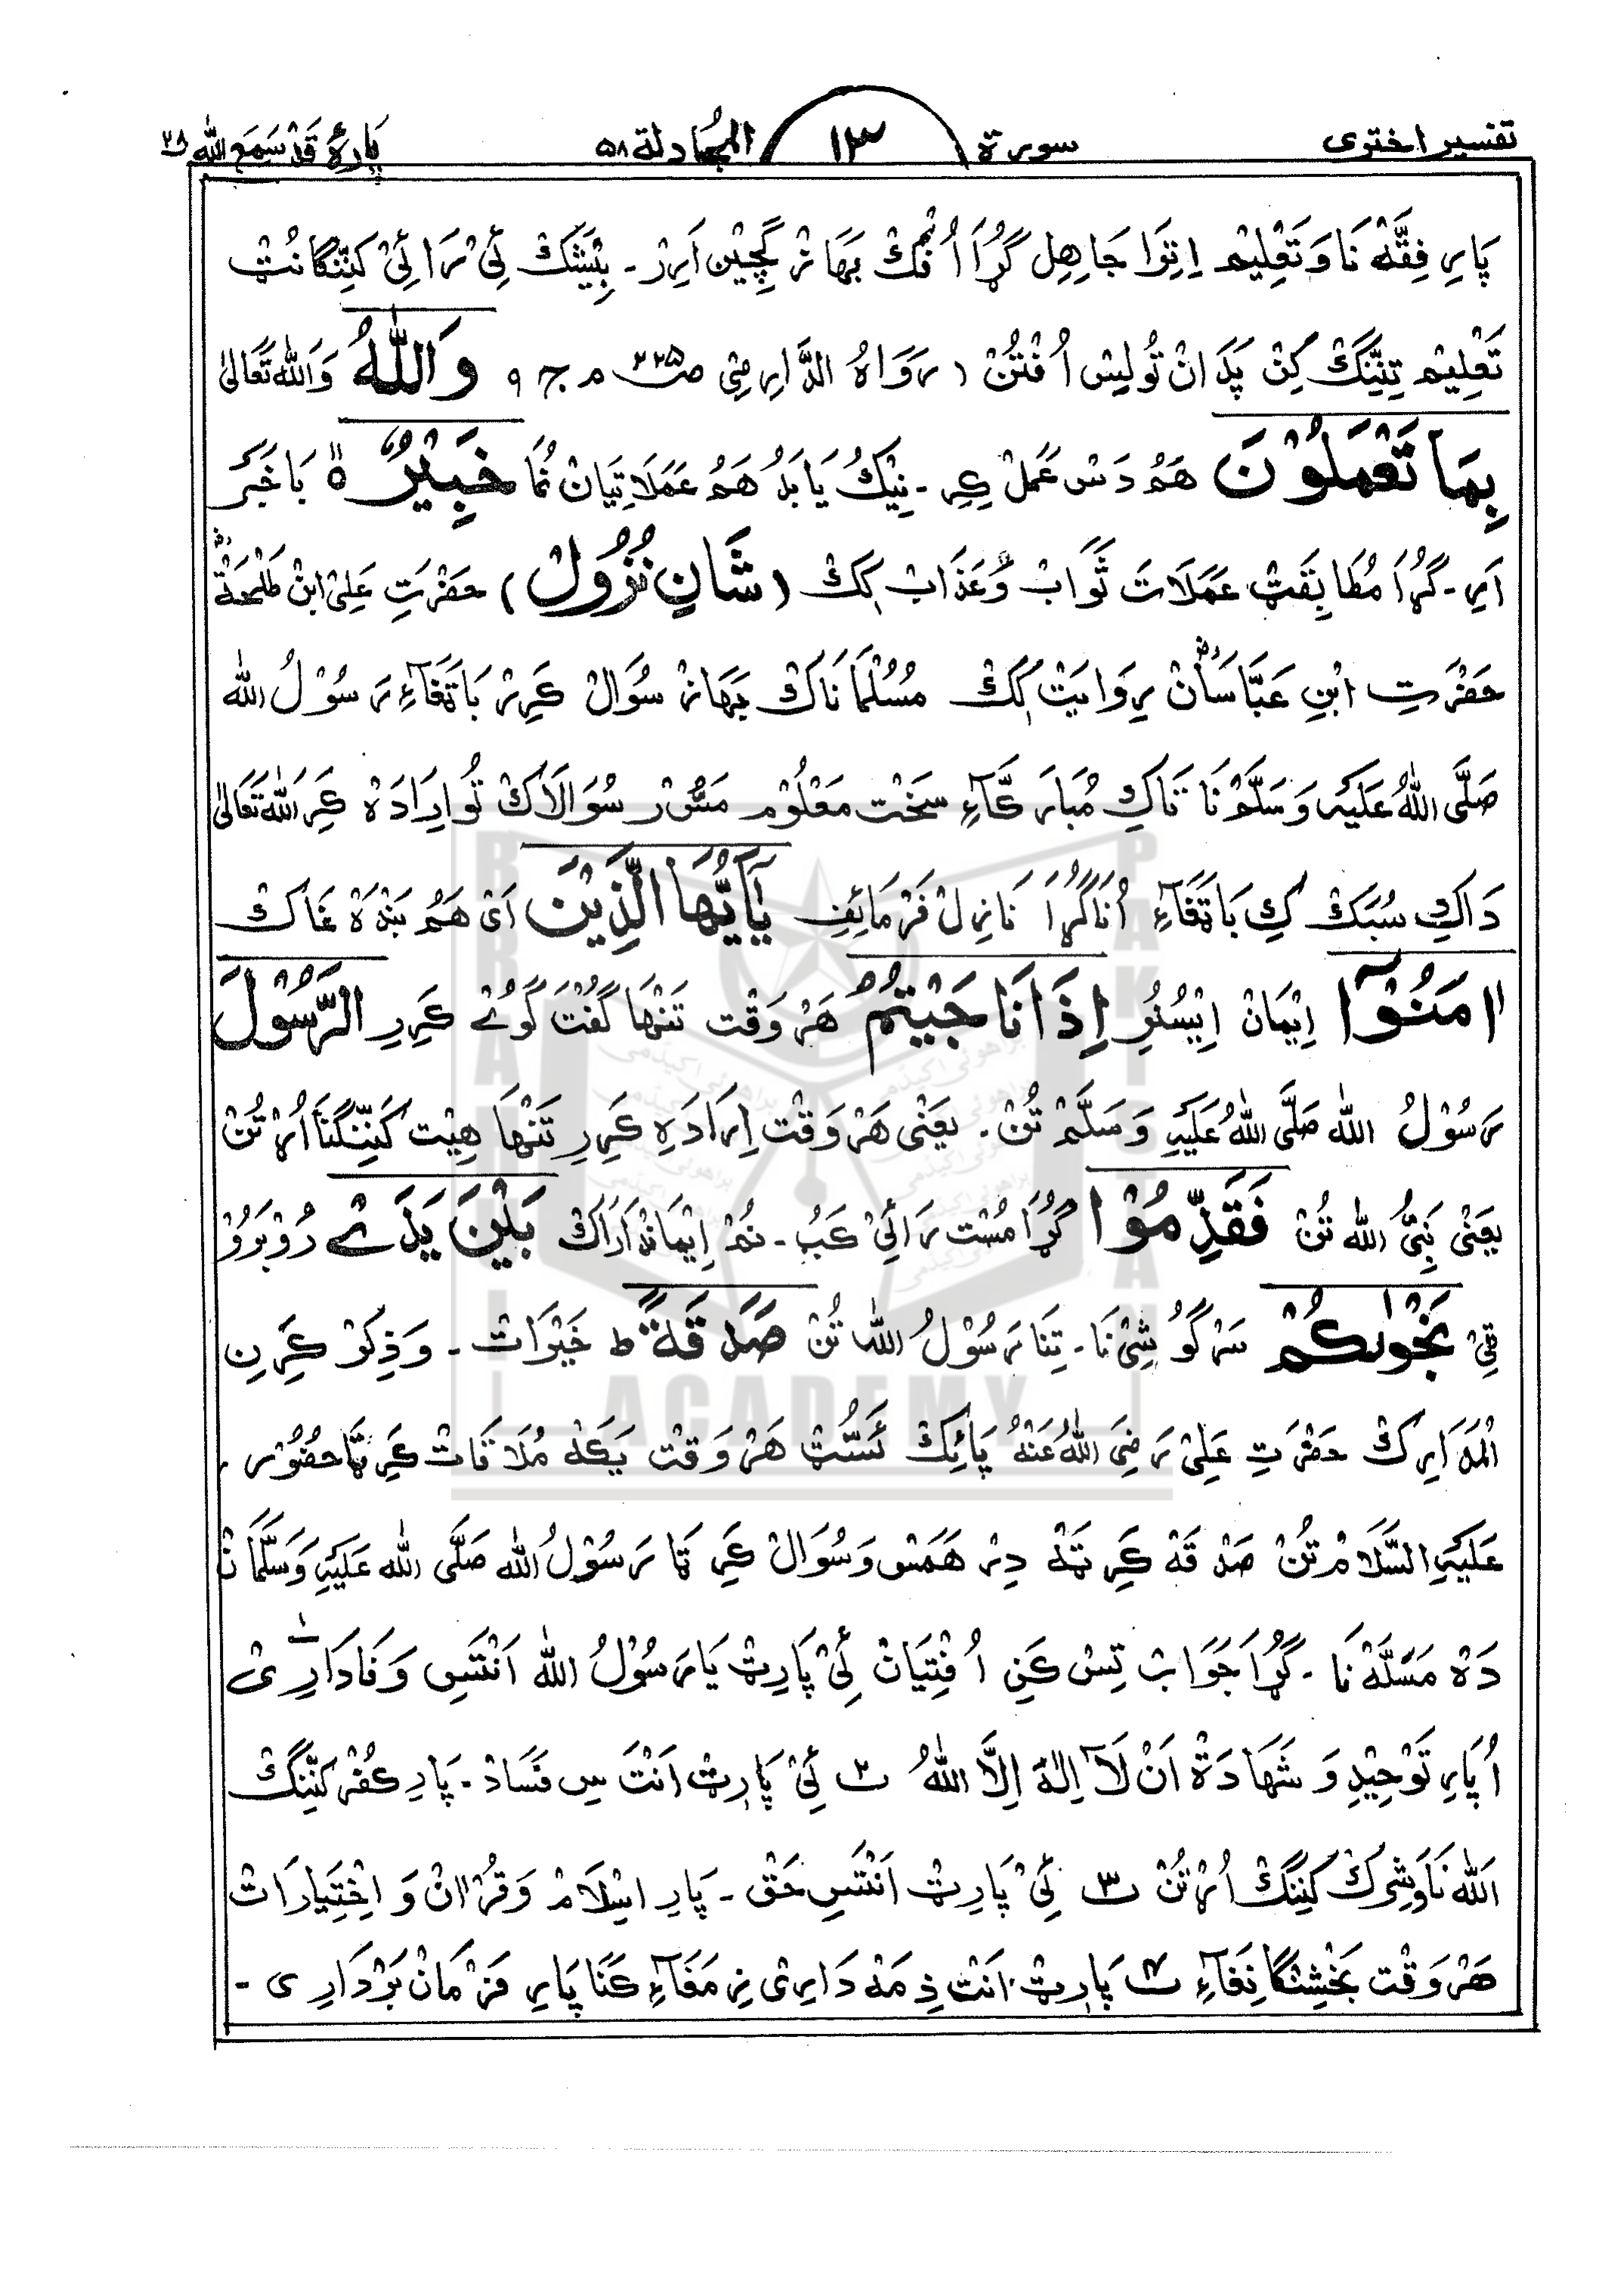 تفسیر اختری سورة ١٣ المجادلة ٥٨ پارهٔ قد سمع الله ٢٨
پَارِ فِقَّهْ نَا وَ تَعْلِیْم اِتِوَا جَاهِل گُڑَا اُفْک بَهَازْ گِچِیْن اَرِرْ۔ بِیْشَکْ نَیْ رَائِیْ کَنِّنْگَانْتْ
تَعْلِیْم تِنِّنْگ کِنْ پَدَانْ تُولِیْسْ اُفْتُنْ (رَوَاهُ الدَّارِمِیْ ص ٢٢٥ م ج ٩ وَاللّٰهُ وَاللّٰه تَعَالیٰ
بِمَا تَعْمَلُوْنَ هَمُ دَسْ عَمَلْ کِرِ۔ نِیْکُ یَا بَدُ هَمُ عَمَلَاتِیَانْ نُمَا خَبِیْرٌ ٥ بَاخَبَر
اَرِ۔ گُڑَا مُطَابِقَتْ عَمَلَاتَ ثَوَابْ وُ عَذَابْ کِکْ (شَانِ نُزُوْل) حَضْرَتِ عَلِیْ ابْنِ طَلْحَةْ
حَضْرَتِ ابْنِ عَبَّاسَانْ رِوَایَتْ کِکْ مُسْلُمَانَاکْ بَهَازْ سُوَالْ کَرِرْ بَاتْغَاءِ رَسُوْلُ الله
صَلَّی اللهُ عَلَیْهِ وَسَلَّمْ نَا تَاکِ مُبَارَکَّآءِ سَخْت مَعْلُوْم مَسُّرْ سُوَالَاکْ تُو اِرَادَهْ کَرِ اَللّٰه تَعَالیٰ
دَاکِ سُبَکْ کِ بَاتْغَآءِ اُنَا گُڑَا نَازِلْ فَرْمَائِفِ یٰۤاَیُّهَا الَّذِیْنَ اَیْ هَمُ بَنْدَهْ غَاکْ
اٰمَنُوْۤا اِیْمَانْ اِیْسُنُرِ اِذَا نَاجَیْتُمُ هَرْ وَقْت تَنْهَا گُفْتَ گُوْئے کَرِرِ الرَّسُوْلَ
رَسُوْلُ الله صَلَّی اللهُ عَلَیْهِ وَسَلَّمْ تُنْ۔ یَعْنِی هَرْ وَقْت اِرَادَهِ کَرِرِ تَنْهَا هِیْت کَنِّنْگَنَا اُرْتُنْ
یَعْنِی نَبِیُّ الله تُنْ فَقَدِّمُوْا گُڑَا مُسْت رَائِیْ کَبُ۔ نُمْ اِیْمَانْدَارَاکْ بَیْنَ یَدَیْ رُوْبَرُوْ
ٹِیْ نَجْوٰىكُمْ سَرْگُوْشِیْ نَا۔ تِنَا رَسُوْلُ الله تُنْ صَدَقَةً ط خَیْرَاتْ۔ وَ ذِکَرْ کَرِنِ
الْمَدَارِکْ حَضْرَتِ عَلِیْ رَضِیَ اللهُ عَنْهُ پَائِکْ نَسُّتْ هَرْ وَقْت یَکَهْ مُلَاقَاتْ کَرِتَا حُضُوْرِ
عَلَیْهِ السَّلَامْ تُنْ صَدْقَهْ کَرِتَهْ دِرْهَمَسْ وَسُوَالْ کَرِتَا رَسُوْلُ الله صَلَّی الله عَلَیْهِ وَسَلَّمَانْ
دَهْ مَسَلَهْ نَا۔ گُڑَا جَوَابْ تِسْ کَنِ اُفْتِیَانْ ١ نَیْ پَارِتْ یَارَسُوْلُ الله اَنْتَسِ وَفَادَارِیْ
اُپَارِ تَوْحِیْدِ وَ شَهَادَةْ اَنْ لَآ اِلٰهَ اِلَّا اللهُ ٢ نَیْ پَارِتْ اَنْتَ سِ فَسَادْ۔ پَارِ کُفْرْ کَنِّنْگْ
اَللّٰه نَا وَشِرْکْ کَنِنْگ اُرْتُنْ ٣ نَیْ پَارِتْ اَنْتَسِ حَقْ۔ پَارِ اِسْلَامْ وَ قُرْاٰنْ وَ اِخْتِیَارَاتْ
هَرْ وَقْت بَخْشِنْگَانِغَآءِ ٤ پَارِتْ اَنْتْ ذِمَهْ دَارِیْ نِ مَغَآءِ کَنَا پَارِ فَرْمَانْ بَرْدَارِی۔
BRAHUI ACADEMY PAKISTAN